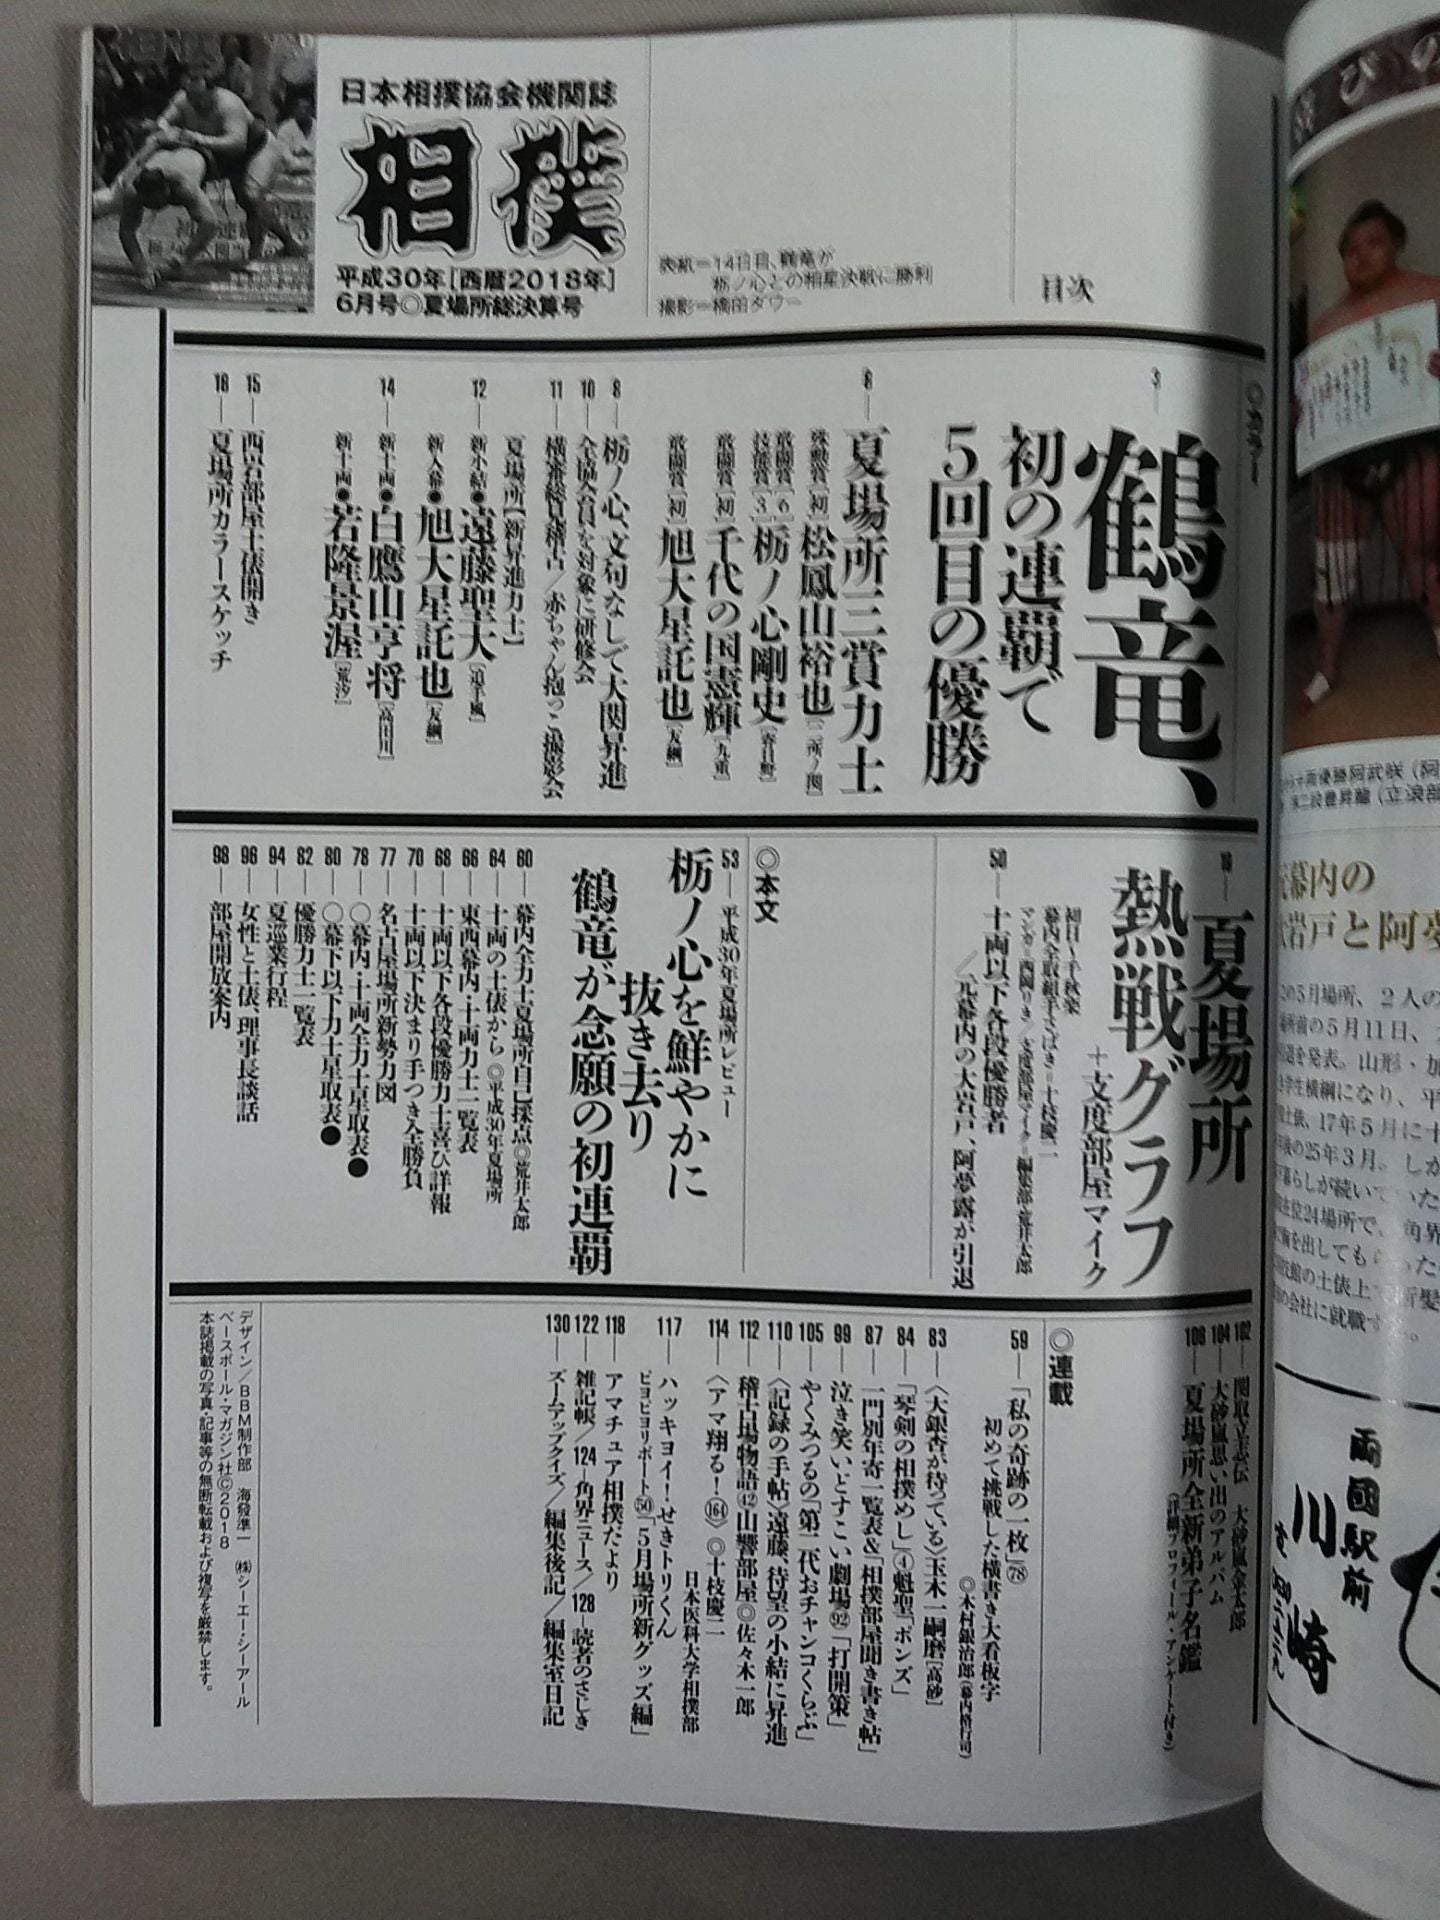 日本相撲協会機関誌
相撲
平成30年[西暦2018年]
6月号◎夏場所総決算号
表紙=14日目、鶴竜が
栃ノ心との相星決戦に勝利
撮影=橋田ダワー
目次
◎カラー
3―鶴竜、
初の連覇で
5回目の優勝
8―夏場所三賞力士
殊勲賞[初]松鳳山裕也[二所ノ関]
敢闘賞[6]
技能賞[3]栃ノ心剛史[春日野]
敢闘賞[初]千代の国憲輝[九重]
敢闘賞[初]旭大星託也[友綱]
8―栃ノ心、文句なしで大関昇進
10―全協会員を対象に研修会
11―横審総見稽古/赤ちゃん抱っこ撮影会
夏場所[新昇進力士]
12―新小結●遠藤聖大[追手風]
新入幕●旭大星託也[友綱]
14―新十両●白鷹山亨将[高田川]
新十両●若隆景渥[荒汐]
15―西岩部屋土俵開き
16―夏場所カラースケッチ
18―夏場所
熱戦グラフ
+支度部屋マイク
初日~千秋楽
幕内全取組手さばき=十枝慶二
マンガ=西岡りき/支度部屋マイク=編集部・荒井太郎
50―十両以下各段優勝者
/元幕内の大岩戸、阿夢露が引退
◎本文
53―平成30年夏場所レビュー
栃ノ心を鮮やかに
抜き去り
鶴竜が念願の初連覇
60―幕内全力士夏場所自己採点◎荒井太郎
64―十両の土俵から◎平成30年夏場所
66―東西幕内・十両力士一覧表
68―十両以下各段優勝力士喜び詳報
70―十両以下決まり手つき全勝負
77―名古屋場所新勢力図
78―○幕内・十両全力士星取表●
80―○幕下以下力士星取表●
82―優勝力士一覧表
94―夏巡業行程
96―女性と土俵、理事長談話
98―部屋開放案内
102―関取立志伝 大砂嵐金太郎
104―大砂嵐思い出のアルバム
106―夏場所全新弟子名鑑
(詳細プロフィール・アンケート付き)
◎連載
59―「私の奇跡の一枚」78
初めて挑戦した横書き大看板字
◎木村銀治郎(幕内格行司)
83―〈大銀杏が待っている〉玉木一嗣磨[高砂]
84―「琴剣の相撲めし」④魁聖「ボンズ」
87―一門別年寄一覧表&「相撲部屋聞き書き帖」
99―泣き笑いどすこい劇場92「打開策」
105―やくみつるの「第二代おチャンコくらぶ」
110―〈記録の手帖〉遠藤、待望の小結に昇進
112―稽古場物語㊷山響部屋◎佐々木一郎
114―〈アマ翔る!164〉◎十枝慶二
日本医科大学相撲部
117―ハッキヨイ!せきトリくん
ピヨピヨリポート㊿「5月場所新グッズ編」
118―アマチュア相撲だより
122―雑記帳/124―角界ニュース/128―読者のさじき
130―ズームアップクイズ/編集後記/編集室日記
デザイン/BBM制作部 海發準一 ㈱シーエー・シーアール
ベースボール・マガジン社©2018
本誌掲載の写真・記事等の無断転載および複写を厳禁します。
両國駅前
川崎